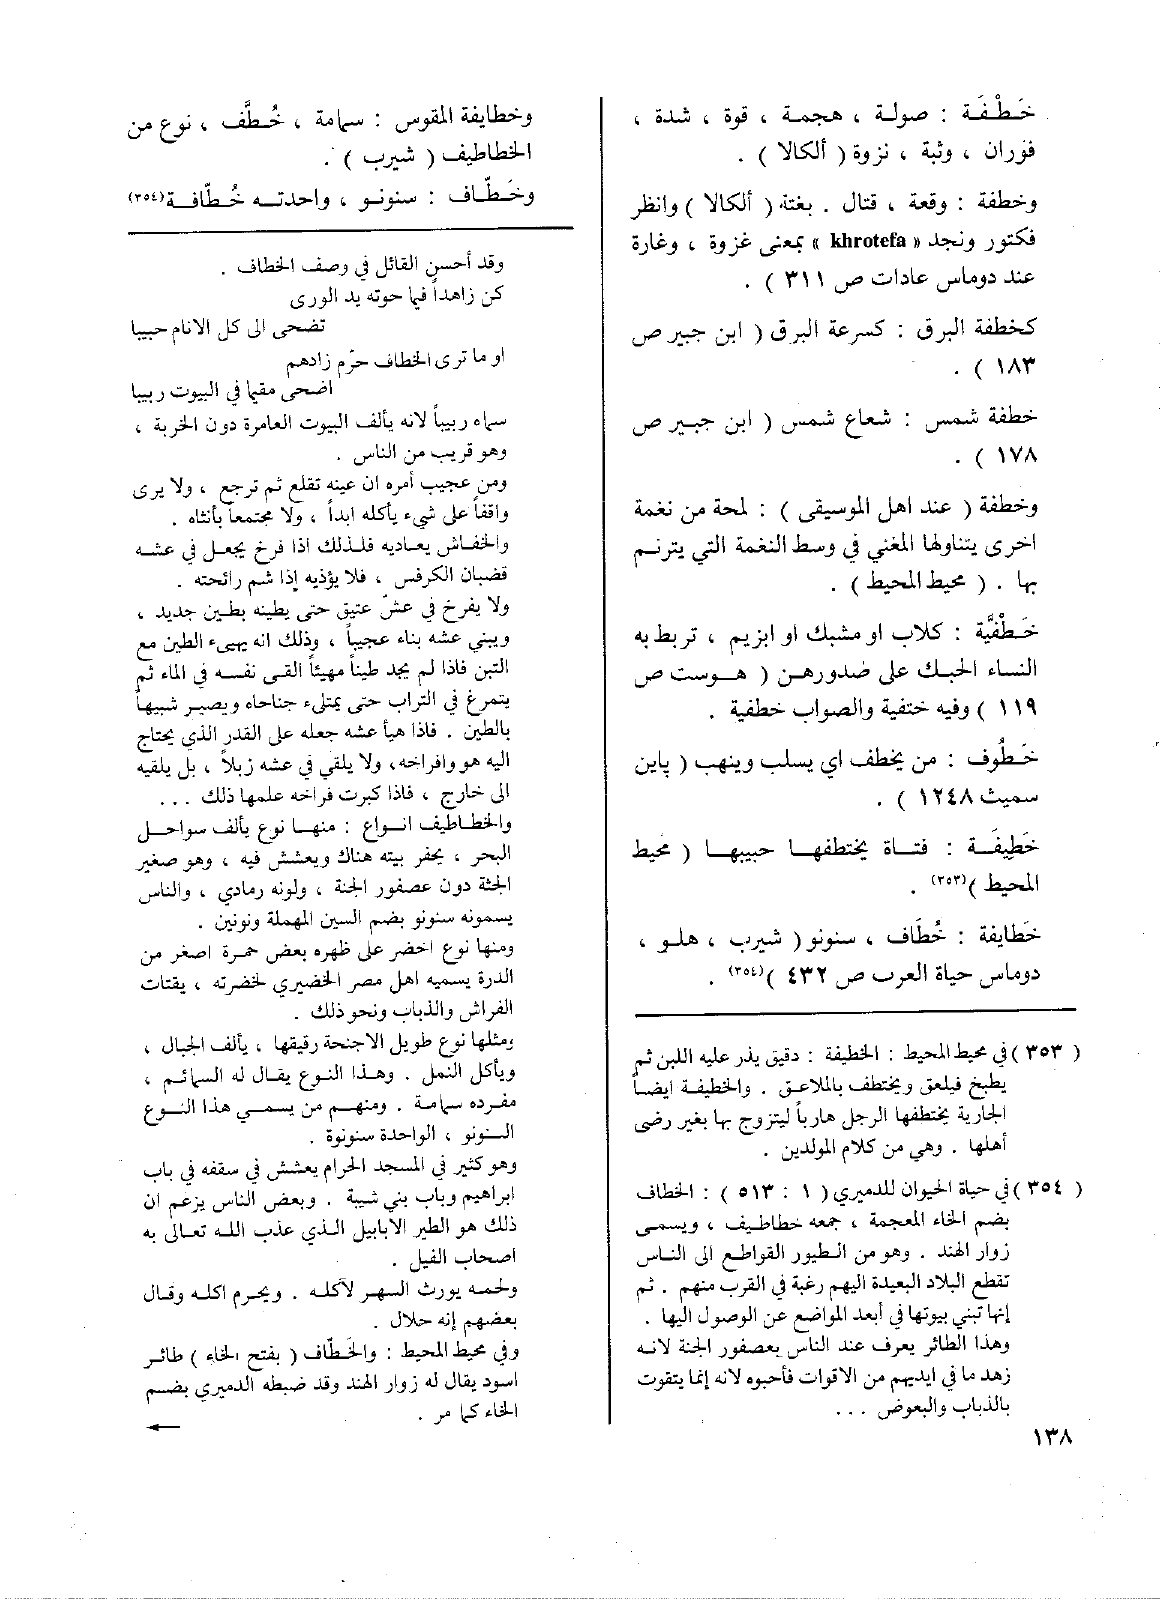 خَـطْـفَـة : صولـة ، هجمـة ، قوة ، شدة ،
فوران ، وثبة ، نزوة ( ألكالا ) .
وخطفة : وقعة ، قتال . بغتة ( ألكالا ) وانظر
فكتور ونجد « khrotefa » بمعنى غزوة ، وغارة
عند دوماس عادات ص ٣١١ ) .
كخطفة البرق : كسرعة البرق ( ابن جبير ص
١٨٣ ) .
خطفة شمس : شعاع شمس ( ابن جبير ص
١٧٨ ) .
وخطفة ( عند اهل الموسيقى ) : لمحة من نغمة
اخرى يتناولها المغني في وسط النغمة التي يترنم
بها . ( محيط المحيط ) .
خَـطْفِيَّة : كلاب او مشبك او ابزيم ، تربط به
النساء الحبك على صدورهن ( هوست ص
١١٩ ) وفيه ختفية والصواب خطفية .
خَـطُوف : من يخطف اي يسلب وينهب ( پاين
سميث ١٢٤٨ ) .
خَطِيفَـة : فتـاة يختطفهـا حبيبهـا ( محيط
المحيط )(٣٥٣) .
خَطايفة : خُطَاف ، سنونو ( شيرب ، هلو ،
دوماس حياة العرب ص ٤٣٢ )(٣٥٤) .
( ٣٥٣ ) في محيط المحيط : الخطيفة : دقيق يذر عليه اللبن ثم
يطبخ فيلعق ويختطف بالملاعق . والخطيفة ايضاً
الجارية يختطفها الرجل هارباً ليتزوج بها بغير رضى
أهلها . وهي من كلام المولدين .
( ٣٥٤ ) في حياة الحيوان للدميري ( ١ : ٥١٣ ) : الخطاف
بضم الخاء المعجمة ، جمعه خطاطيف ، ويسمى
زوار الهند . وهو من الطيور القواطع الى الناس
تقطع البلاد البعيدة اليهم رغبة في القرب منهم . ثم
إنها تبني بيوتها في أبعد المواضع عن الوصول اليها .
وهذا الطائر يعرف عند الناس بعصفور الجنة لانه
زهد ما في ايديهم من الاقوات فأحبوه لانه إنما يتقوت
بالذباب والبعوض ...
وخطايفة المقوس : سمامة ، خُطَّف ، نوع من
الخطاطيف ( شيرب ) .
وخَـطّـاف : سنونو ، واحدتـه خُـطّافـة(٣٥٤)
وقد أحسن القائل في وصف الخطاف .
كن زاهداً فيما حوته يد الورى
تضحى الى كل الانام حبيبا
او ما ترى الخطاف حرّم زادهم
اضحى مقيما في البيوت ربيبا
سماه ربيباً لانه يألف البيوت العامرة دون الخربة ،
وهو قريب من الناس .
ومن عجيب أمره ان عينه تقلع ثم ترجع ، ولا يرى
واقفاً على شيء يأكله ابداً ، ولا مجتمعاً بأنثاه .
والخفاش يعاديه فلذلك اذا فرخ يجعل في عشه
قضبان الكرفس ، فلا يؤذيه إذا شم رائحته .
ولا يفرخ في عشّ عتيق حتى يطينه بطين جديد ،
ويبني عشه بناء عجيباً ، وذلك انه يهيىء الطين مع
التبن فاذا لم يجد طيناً مهيئاً القى نفسه في الماء ثم
يتمرغ في التراب حتى يمتلىء جناحاه ويصير شبيهاً
بالطين . فاذا هيأ عشه جعله على القدر الذي يحتاج
اليه هو وافراخه، ولا يلقي في عشه زبلاً ، بل يلقيه
الى خارج ، فاذا كبرت فراخه علمها ذلك ...
والخطاطيف انواع : منها نوع يألف سواحل
البحر ، يحفر بيته هناك ويعشش فيه ، وهو صغير
الجثة دون عصفور الجنة ، ولونه رمادي ، والناس
يسمونه سنونو بضم السين المهملة ونونين .
ومنها نوع اخضر على ظهره بعض حمرة اصغر من
الدرة يسميه اهل مصر الخضيري لخضرته ، يقتات
الفراش والذباب ونحو ذلك .
ومثلها نوع طويل الاجنحة رقيقها ، يألف الجبال ،
ويأكل النمل . وهذا النوع يقال له السمائم ،
مفرده سمامة . ومنهم من يسمي هذا النوع
السنونو ، الواحدة سنونوة .
وهو كثير في المسجد الحرام يعشش في سقفه في باب
ابراهيم وباب بني شيبة . وبعض الناس يزعم ان
ذلك هو الطير الابابيل الذي عذب الله تعالى به
اصحاب الفيل .
ولحمه يورث السهر لآكله . ويحرم اكله وقال
بعضهم إنه حلال .
وفي محيط المحيط : والخَطّاف ( بفتح الخاء ) طائر
اسود يقال له زوار الهند وقد ضبطه الدميري بضم
الخاء كما مر .
١٣٨